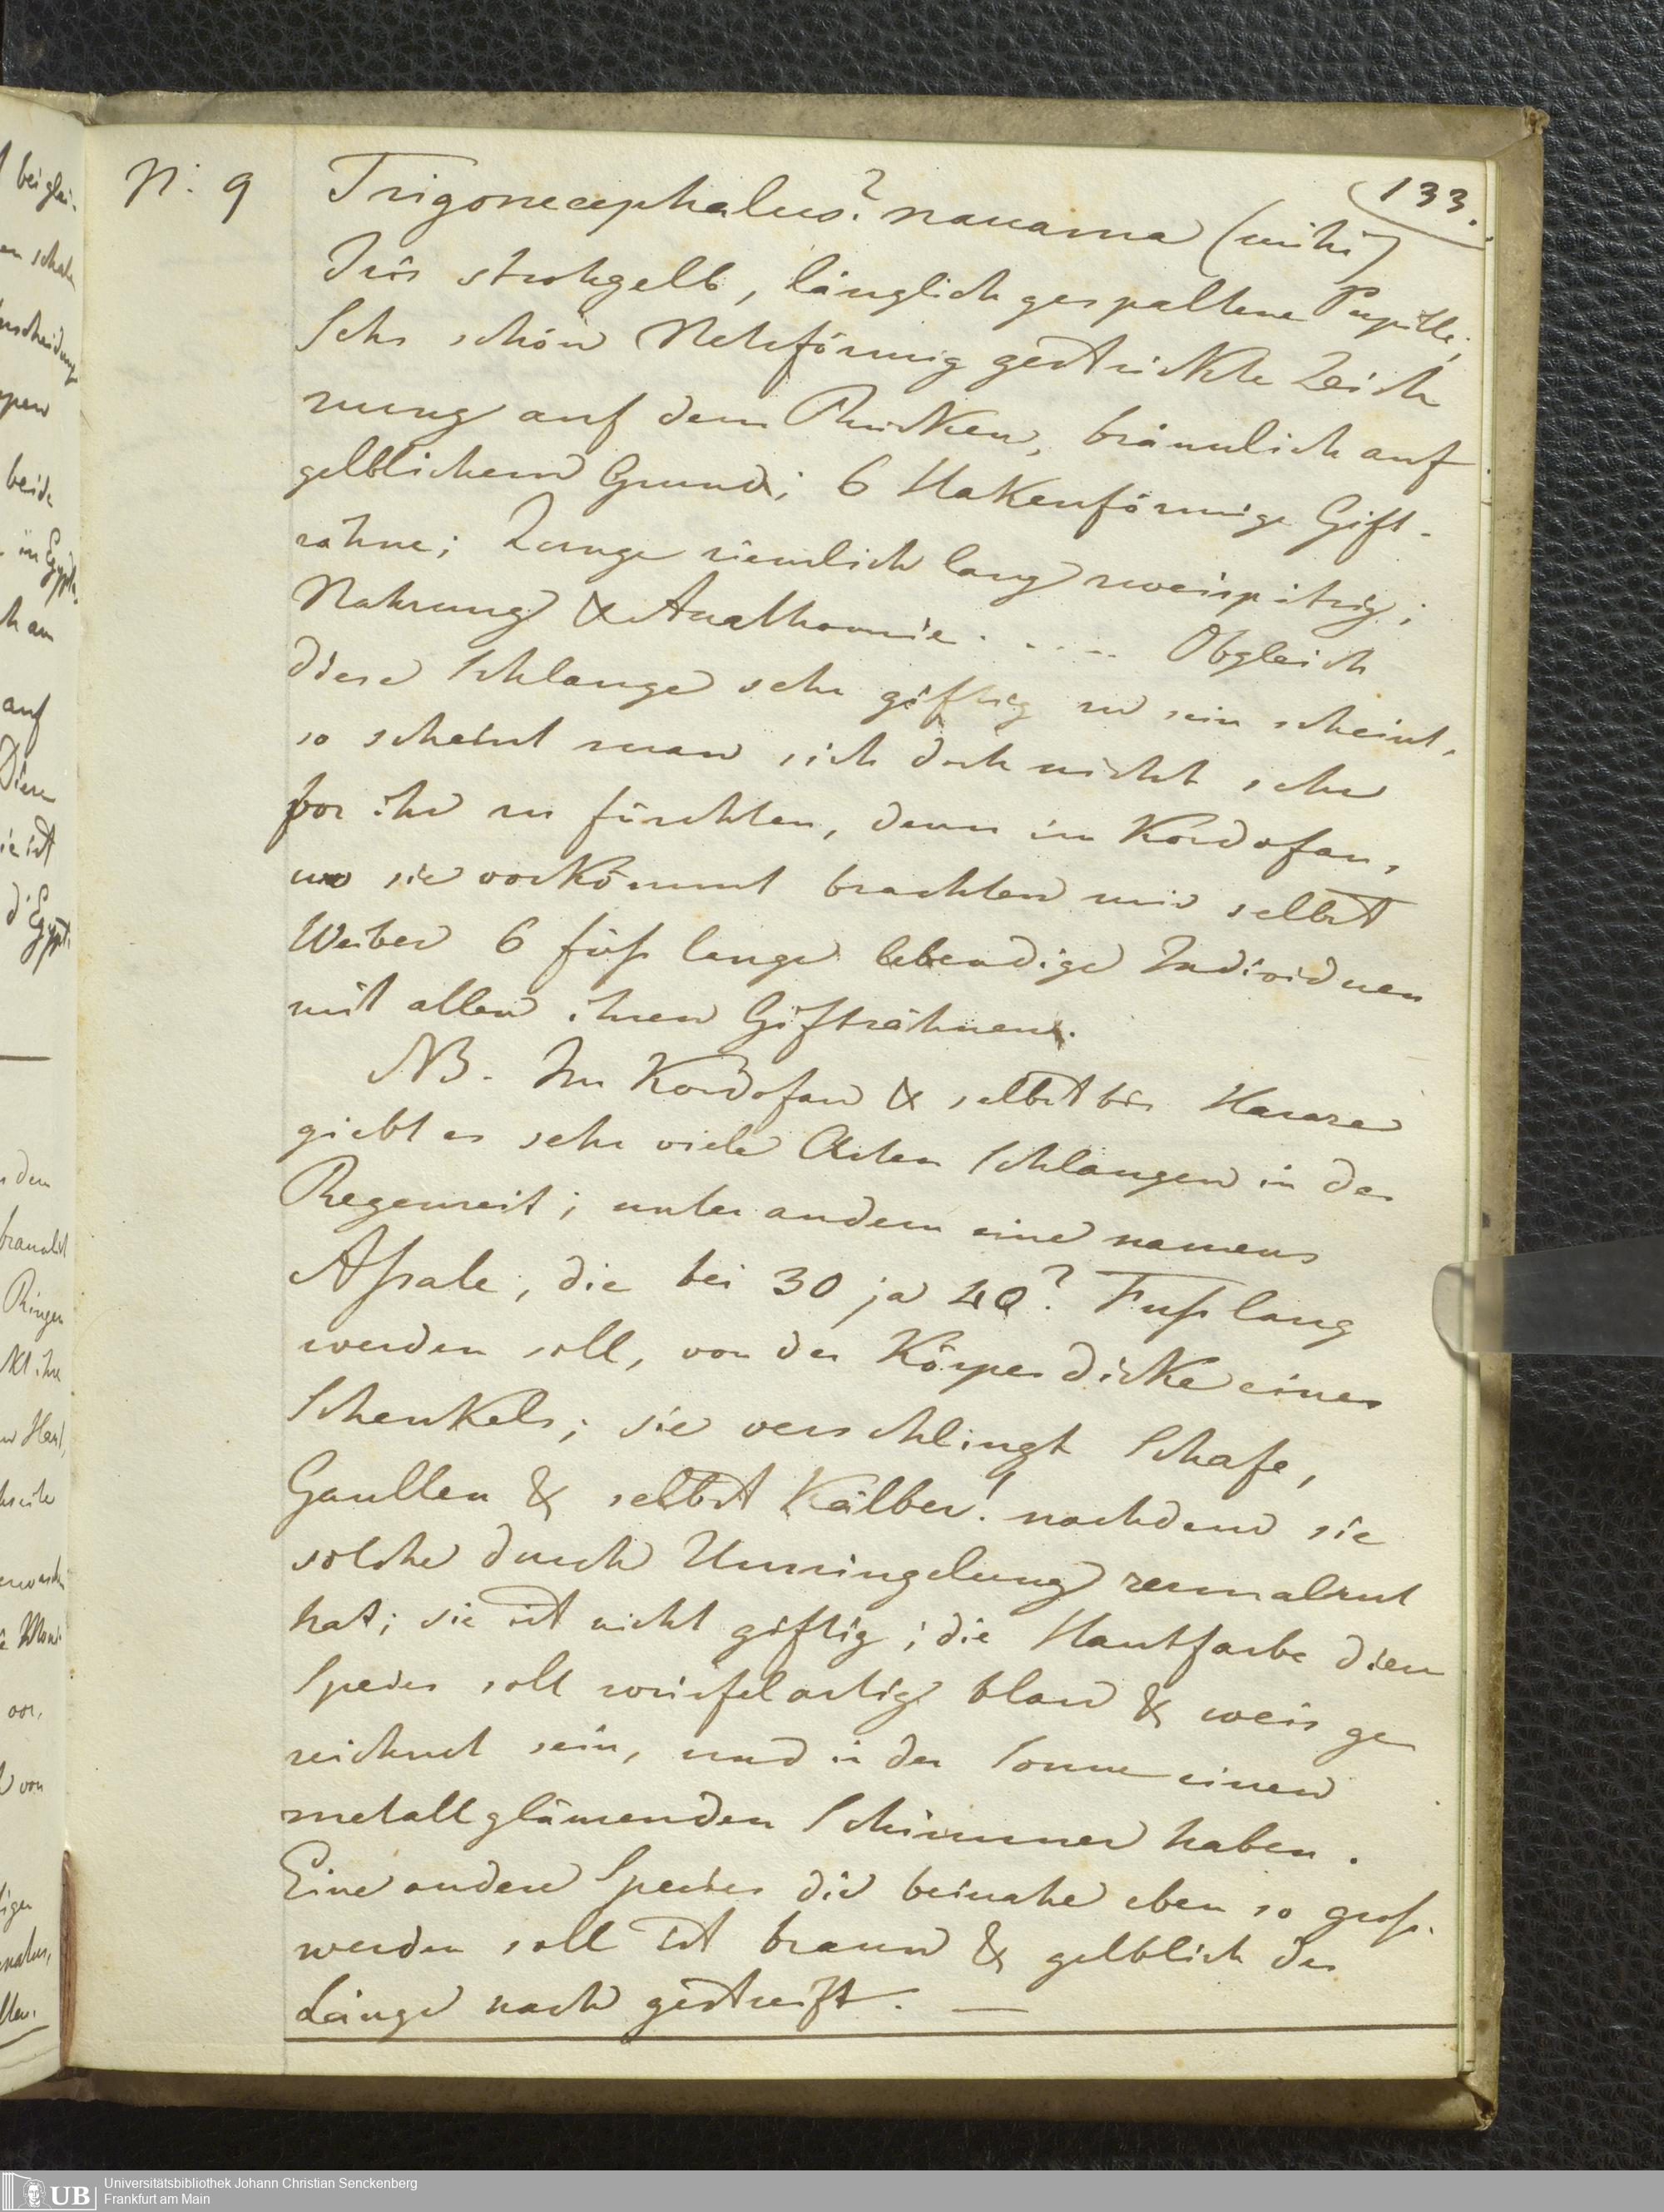 133.
N: 9 Trigonocephalus? nauama (mihi)
Iris strohgelb, länglich gespaltene Pupille;
Sehr schön Netzförmig gestrickte Zeich
nung auf dem Rucken, bräunlich auf
gelblichem Grund; 6 Hakenförmige Gift-
zähne; Zunge ziemlich lang zweispitzig;
Nahrung & Anathomie. .... Obgleich
diese Schlange sehr giftig zu sein scheint,
so scheint man sich doch nicht sehr
vor ihr zu fürchten, denn im Kordofan,
wo sie vorkömmt brachten mir selbst
Weiber 6 fuß lange lebendige Individuen
mit allen ihren Giftzähnen.
NB. Im Kordofan & selbst bis
giebt es sehr viele Arten Schlangen in der
Regenzeit; unter andern eine namens
Assale, die bei 30 ja 40? Fuß lang
werden soll, von der Körperdicke eines
Schenkels; sie verschlingt Schafe,
Gazellen & selbst Kälber! nachdem sie
solche durch Umringelung zermalmt
hat; sie ist nicht giftig; die Hautfarbe dieser
Species soll würfelartig blau & weis ge
zeichnet sein, und in der Sonne einen
metallglänzenden Schimmer haben.
Eine andere Species die beinahe eben so groß
werden soll ist braun & gelblich der
Länge nach gestreift. —
bei glei-
beide
in Egypten
auf
Diese
sie ist
d: Egypt:
dem
Ringen
ihre
vor,
von
UB
Universitätsbibliothek Johann Christian Senckenberg
Frankfurt am Main